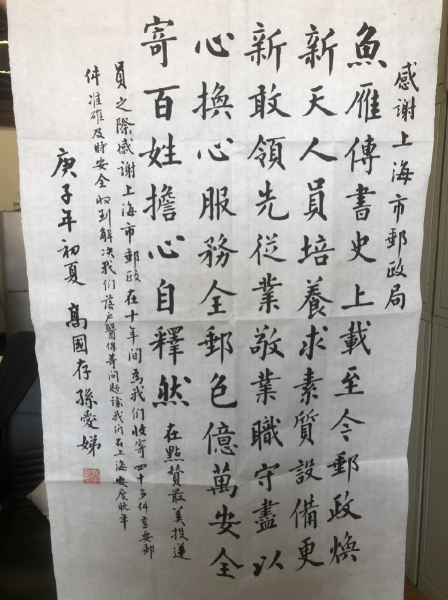 感謝上海市郵政局
魚雁傳書史上載至今郵政煥
新天人員培養求素質設備更
新敢領先從業敬業職守盡以
心換心服務全郵色億萬安全
寄百姓擔心自釋然在點贊最美投遞
員之際感謝上海市郵政在十年間為我們收寄四十多件至安郵
件准確及時安全收到解決我們落戶醫保等問題讓我們在上海安度晚年
庚子年初夏 高國存 孫愛娣